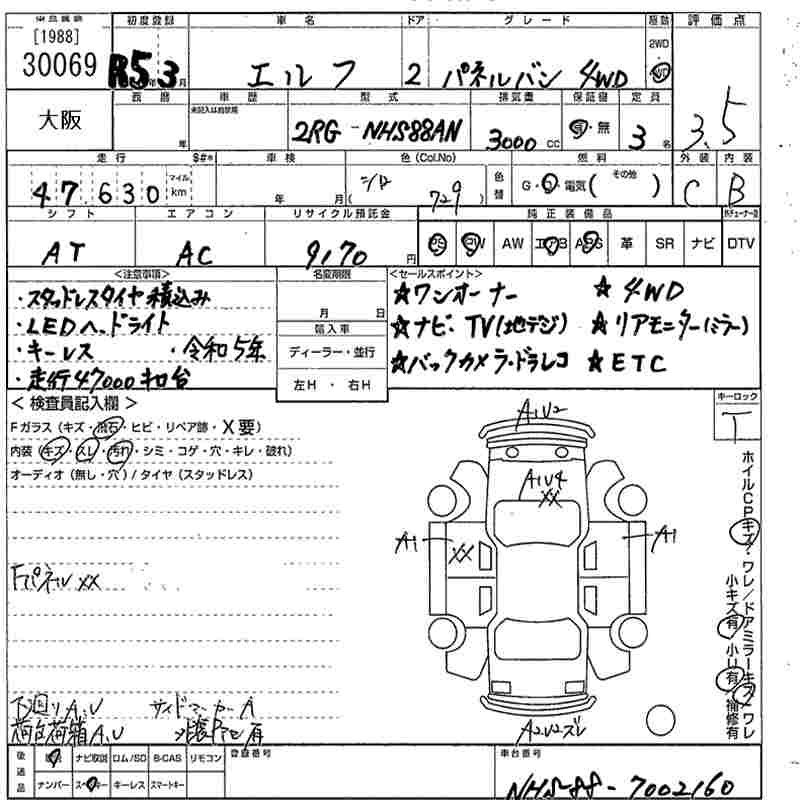 [1988] 初度登録 車名 ドア グレード 駆動 評価点
30069 R5年3月 エルフ 2 パネルバン 4WD 2WD 4WD 3.5
大阪 西暦 年 車歴 未記入は自家用 型式 2RG-NHS88AN 排気量 3000cc 保証書 有・無 定員 3名
走行 $#* 車検 色(Col.No) 色替 燃料 外装 内装
47,630 マイル km 年 月 シロ (729) G・D・電気( その他 ) C B
シフト エアコン リサイクル預託金 純正装備品
AT AC 9170円 PS PW AW エアB ABS 革 SR ナビ DTV
<注意事項> 名変期限 <セールスポイント>
・スタッドレスタイヤ積込み 月 日 ★ワンオーナー ★4WD
・LEDヘッドライト 輸入車 ★ナビ・TV(地デジ) ★リアモニター(ミラー)
・キーレス ・令和5年 ディーラー・並行 ★バックカメラ・ドラレコ ★ETC
・走行47000キロ台 左H・右H
<検査員記入欄> キーロック
Fガラス(キズ・飛石・ヒビ・リペア跡・X要) T
内装(キズ・スレ・汚れ・シミ・コゲ・穴・キレ・破れ)
オーディオ(無し・穴)/タイヤ(スタッドレス)
A1U2
A1U4
XX
A1 XX A1
ホイルCPキズ・ワレ/ドアミラーキズ・ワレ
小キズ有 小U有 補修有
Fパネル XX
下廻りA,U サイドマーカーA
荷台荷箱A,U 外装P 有
A2U2ズレ
後送品 ナビ取説 ロム/SD B-CAS リモコン 登録番号 車台番号
ナンバー スペアキー キーレス スマートキー NHS88-7002160